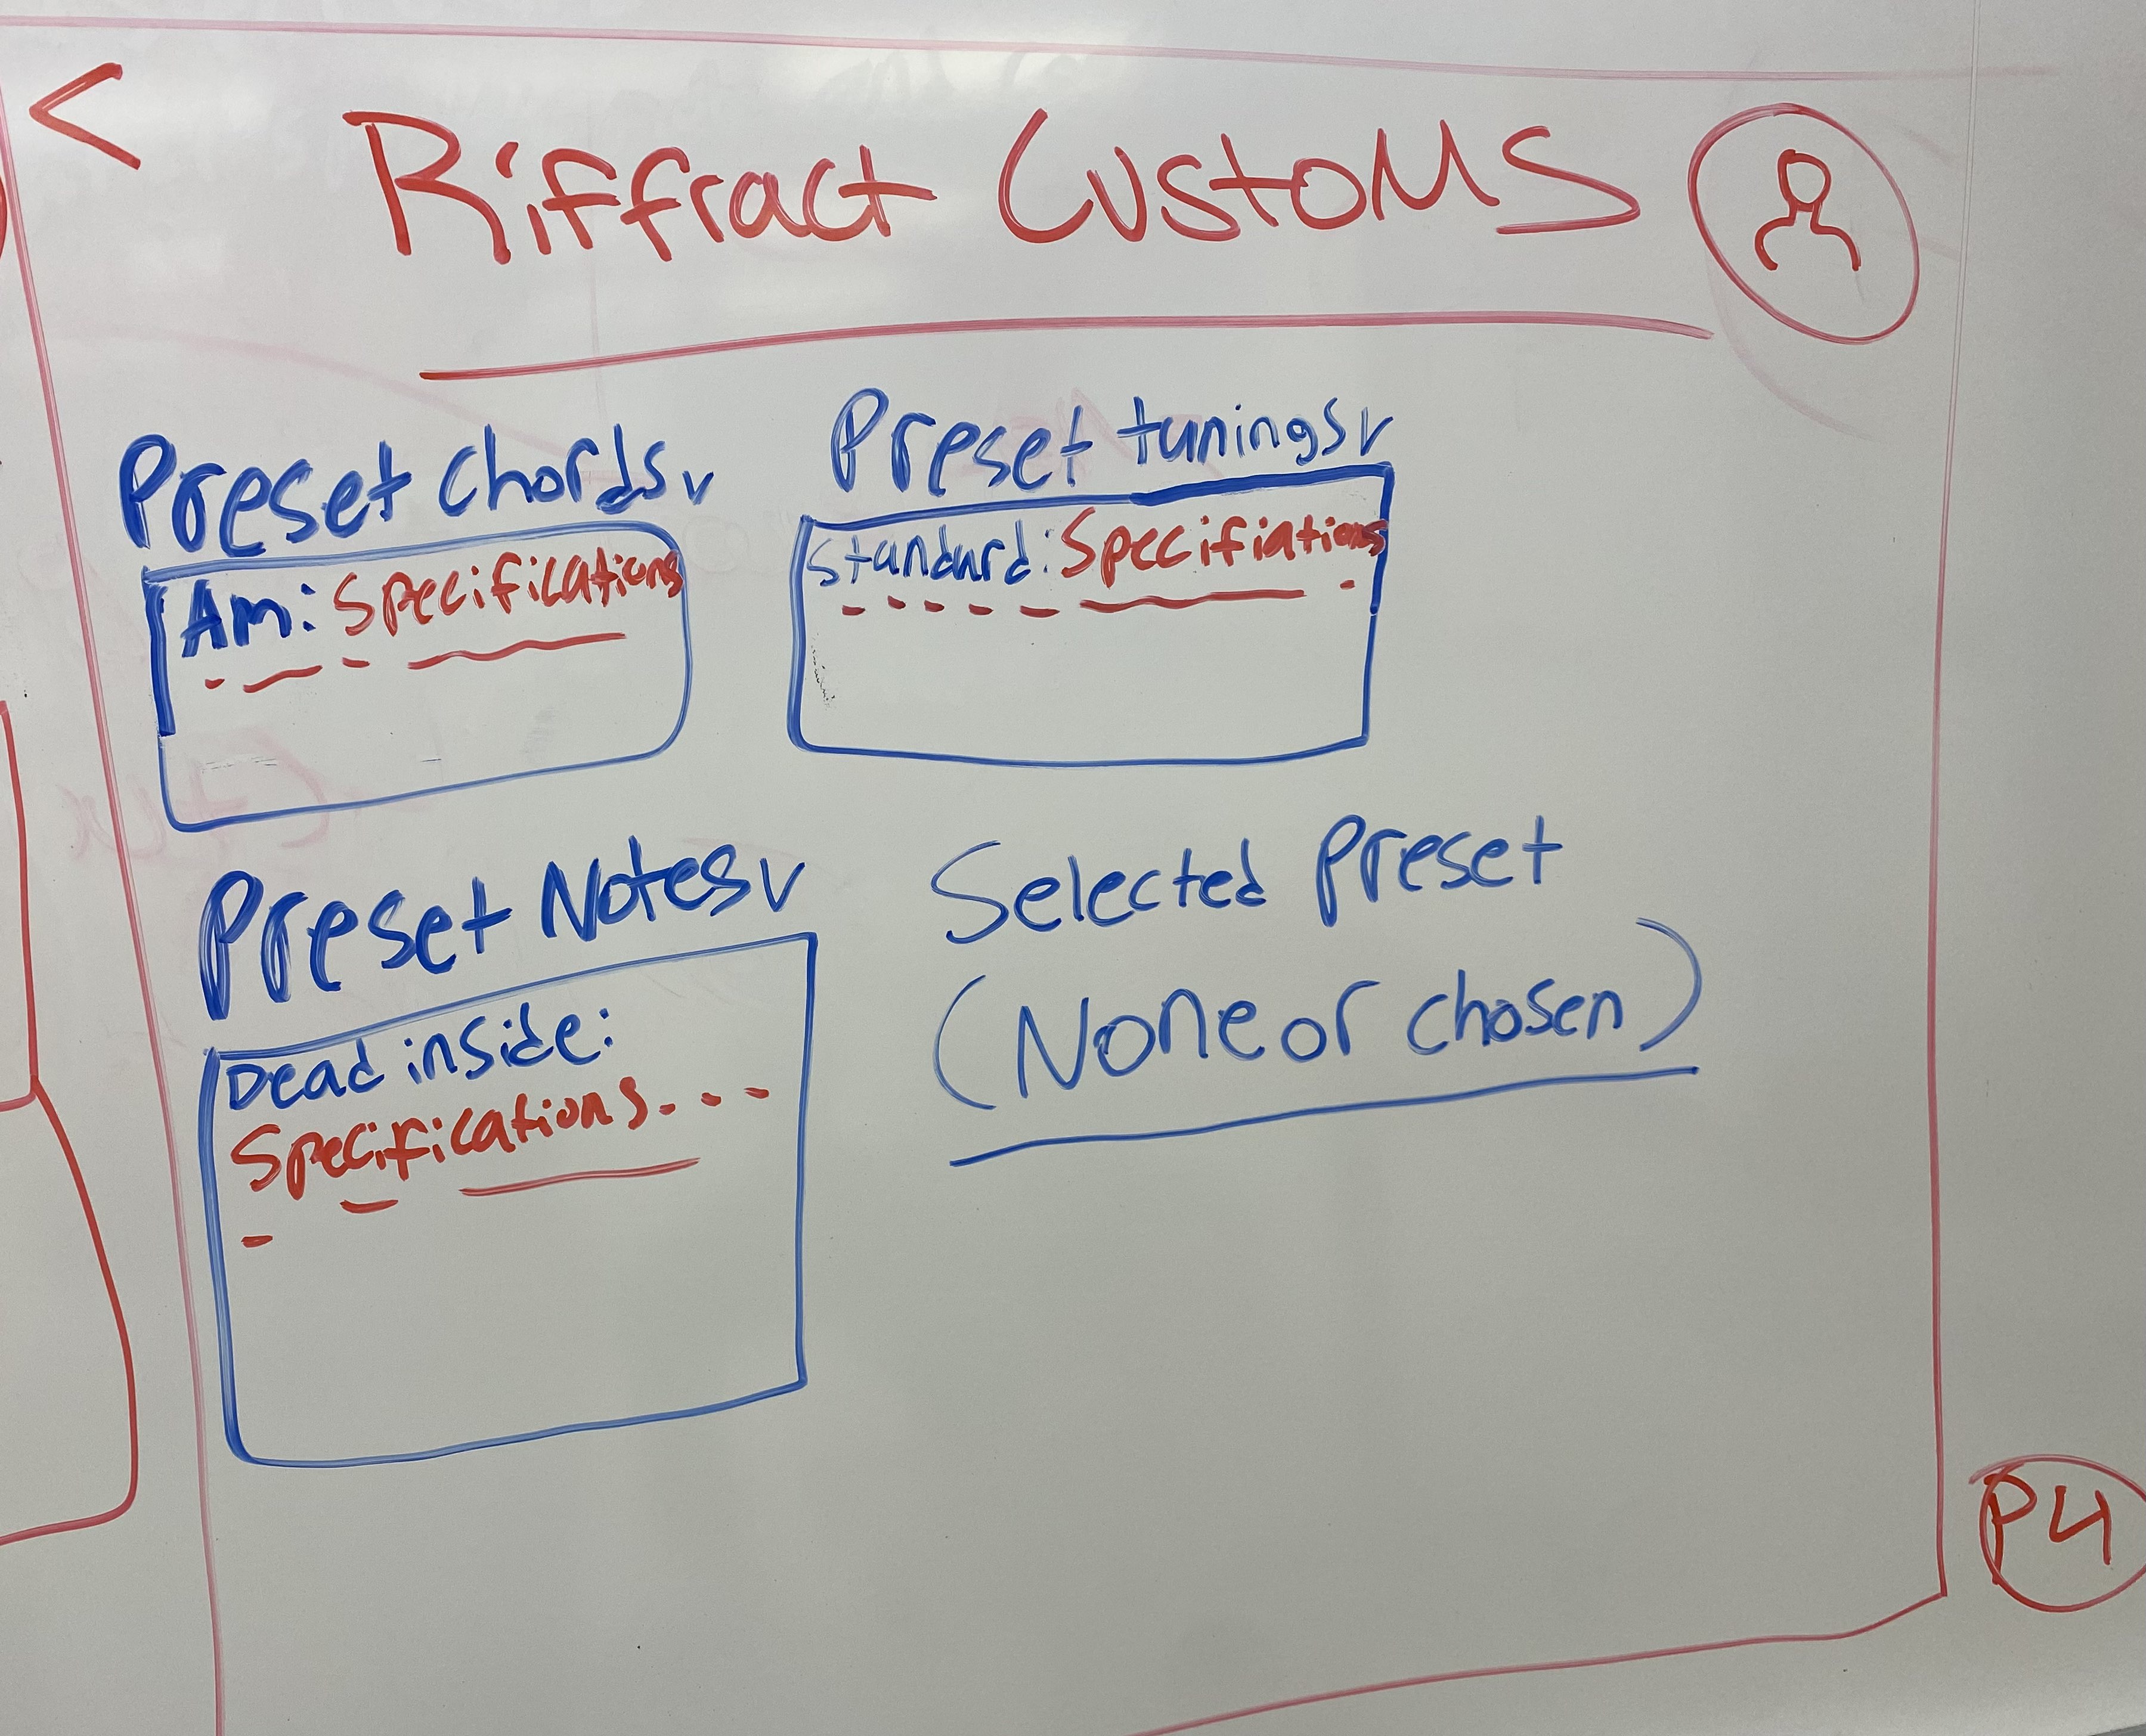 <
Riffract Customs
Preset Chords v
Am: Specifications
Preset tunings v
Standard: Specifiations
Preset Notes v
Dead inside:
Specifications...
Selected Preset
(None or chosen)
P4